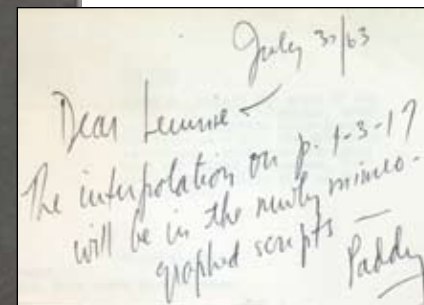 July 30/63
Dear Lennie —
The interpolation on p. 1-3-17
will be in the newly mimeo-
graphed scripts —
Paddy